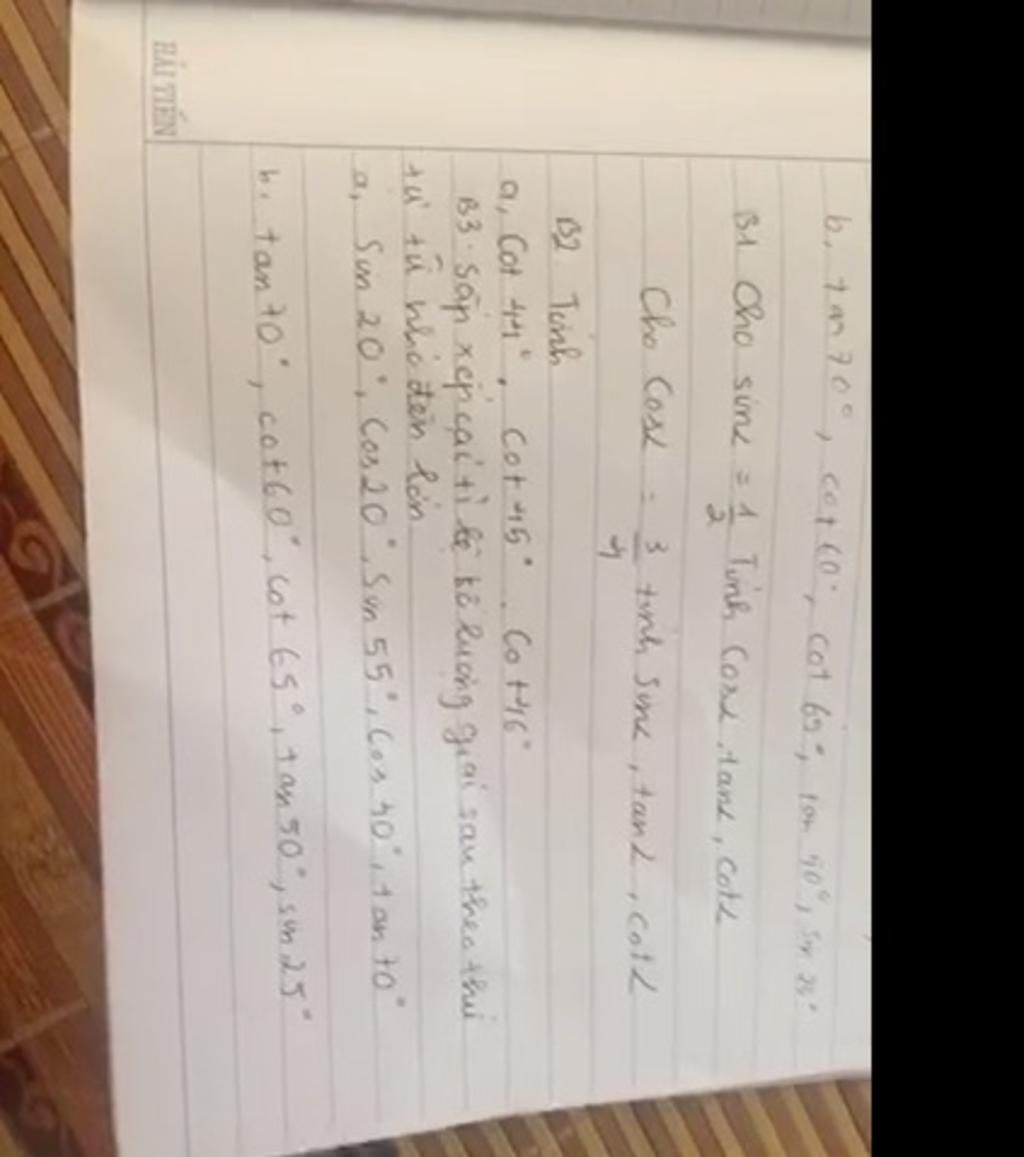 b, tan 70°, cot 60°, cot 65°, tan 50°, sin 25°
B1 Cho sinα = 1/2 Tính Cosα, tanα, cotα
Cho Cosα = 3/4 tính Sinα, tanα, cotα
B2 Tính
a, Cot 44°. Cot 45°. Cot 46°
B3. Sắp xếp các tỉ lệ số lượng giác sau theo thứ
tự từ nhỏ đến lớn
a, Sin 20°, Cos 20°, Sin 55°, Cos 40°, tan 70°
b, tan 70°, cot 60°, cot 65°, tan 50°, sin 25°
HẢI TIẾN